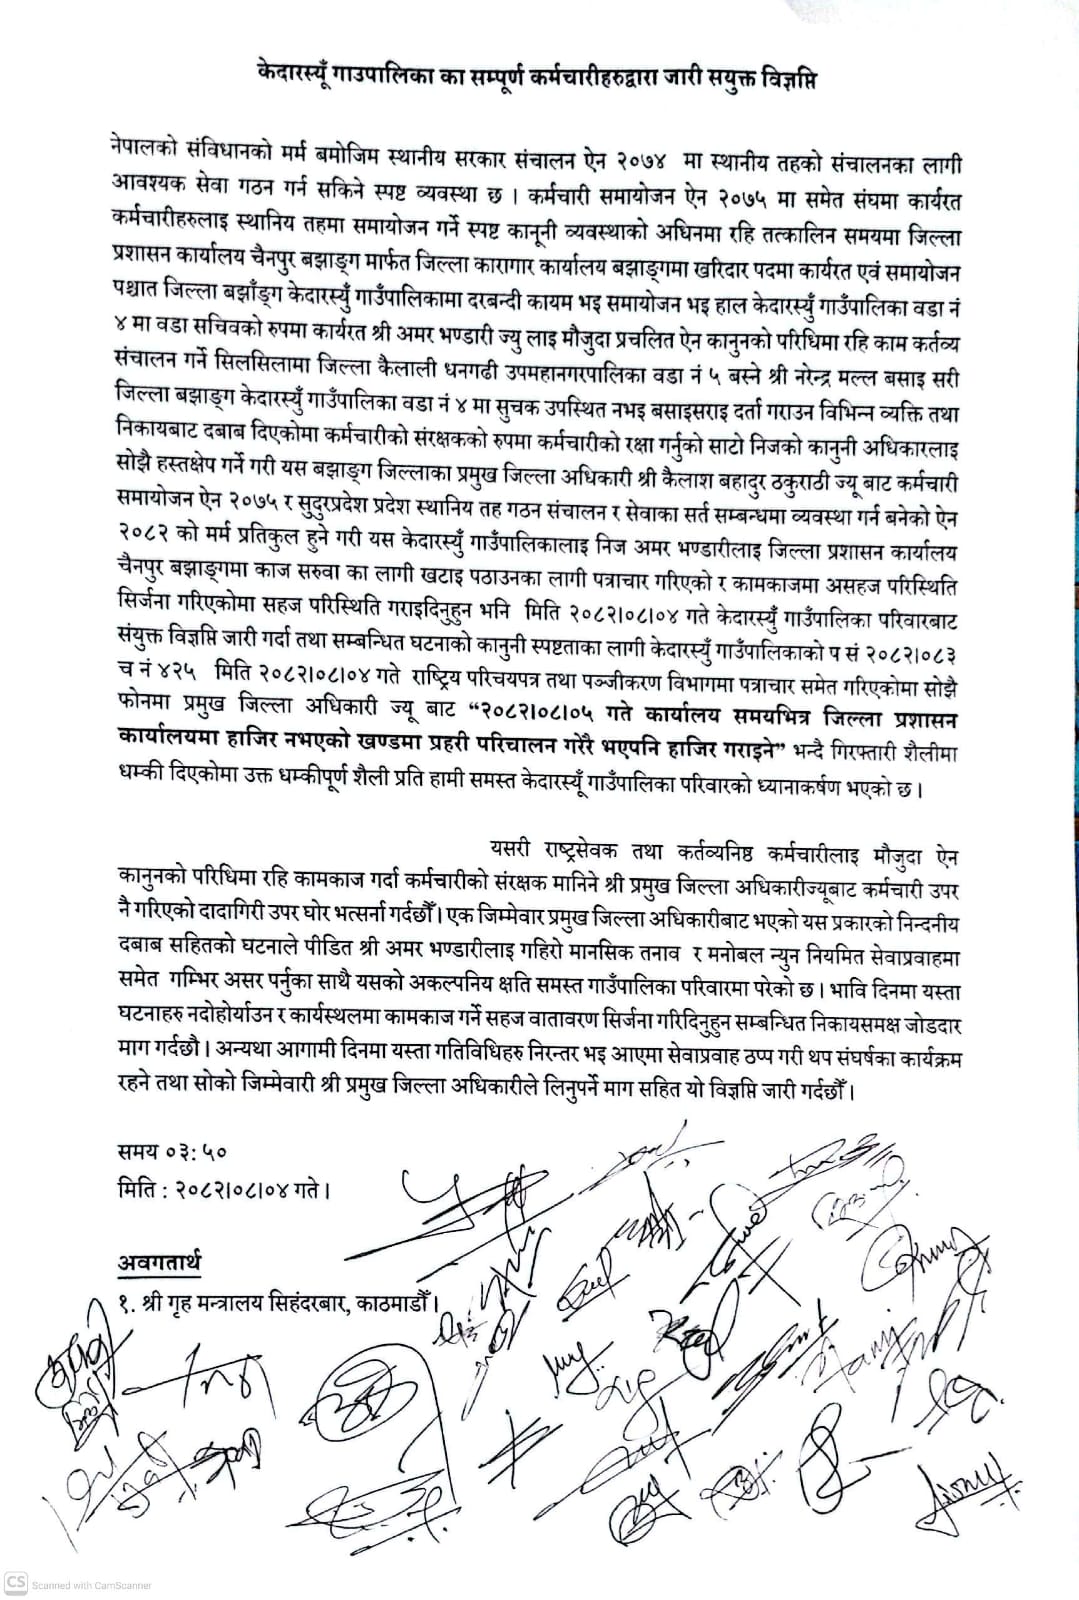 केदारस्यूँ गाउपालिका का सम्पूर्ण कर्मचारीहरुद्वारा जारी सयुक्त विज्ञप्ति
नेपालको संविधानको मर्म बमोजिम स्थानीय सरकार संचालन ऐन २०७४ मा स्थानीय तहको संचालनका लागी
आवश्यक सेवा गठन गर्न सकिने स्पष्ट व्यवस्था छ । कर्मचारी समायोजन ऐन २०७५ मा समेत संघमा कार्यरत
कर्मचारीहरुलाइ स्थानिय तहमा समायोजन गर्ने स्पष्ट कानूनी व्यवस्थाको अधिनमा रहि तत्कालिन समयमा जिल्ला
प्रशासन कार्यालय चैनपुर बझाङ्ग मार्फत जिल्ला कारागार कार्यालय बझाङ्गमा खरिदार पदमा कार्यरत एवं समायोजन
पश्चात जिल्ला बझाँङ्ग केदारस्युँ गाउँपालिकामा दरबन्दी कायम भइ समायोजन भइ हाल केदारस्युँ गाउँपालिका वडा नं
४ मा वडा सचिवको रुपमा कार्यरत श्री अमर भण्डारी ज्यु लाइ मौजुदा प्रचलित ऐन कानुनको परिधिमा रहि काम कर्तव्य
संचालन गर्ने सिलसिलामा जिल्ला कैलाली धनगढी उपमहानगरपालिका वडा नं ५ बस्ने श्री नरेन्द्र मल्ल बसाइ सरी
जिल्ला बझाङ्ग केदारस्युँ गाउँपालिका वडा नं ४ मा सुचक उपस्थित नभइ बसाइसराइ दर्ता गराउन विभिन्न व्यक्ति तथा
निकायबाट दबाब दिएकोमा कर्मचारीको संरक्षकको रुपमा कर्मचारीको रक्षा गर्नुको साटो निजको कानुनी अधिकारलाइ
सोझै हस्तक्षेप गर्ने गरी यस बझाङ्ग जिल्लाका प्रमुख जिल्ला अधिकारी श्री कैलाश बहादुर ठकुराठी ज्यू बाट कर्मचारी
समायोजन ऐन २०७५ र सुदुरप्रदेश प्रदेश स्थानिय तह गठन संचालन र सेवाका सर्त सम्बन्धमा व्यवस्था गर्न बनेको ऐन
२०८२ को मर्म प्रतिकुल हुने गरी यस केदारस्युँ गाउँपालिकालाइ निज अमर भण्डारीलाइ जिल्ला प्रशासन कार्यालय
चैनपुर बझाङ्गमा काज सरुवा का लागी खटाइ पठाउनका लागी पत्राचार गरिएको र कामकाजमा असहज परिस्थिति
सिर्जना गरिएकोमा सहज परिस्थिति गराइदिनुहुन भनि मिति २०८२।०८।०४ गते केदारस्युँ गाउँपालिका परिवारबाट
संयुक्त विज्ञप्ति जारी गर्दा तथा सम्बन्धित घटनाको कानुनी स्पष्टताका लागी केदारस्युँ गाउँपालिकाको प सं २०८२।०८३
च नं ४२५ मिति २०८२।०८।०४ गते राष्ट्रिय परिचयपत्र तथा पञ्जीकरण विभागमा पत्राचार समेत गरिएकोमा सोझै
फोनमा प्रमुख जिल्ला अधिकारी ज्यू बाट “२०८२।०८।०५ गते कार्यालय समयभित्र जिल्ला प्रशासन
कार्यालयमा हाजिर नभएको खण्डमा प्रहरी परिचालन गरेरै भएपनि हाजिर गराइने” भन्दै गिरफ्तारी शैलीमा
धम्की दिएकोमा उक्त धम्कीपूर्ण शैली प्रति हामी समस्त केदारस्यूँ गाउँपालिका परिवारको ध्यानाकर्षण भएको छ ।
यसरी राष्ट्रसेवक तथा कर्तव्यनिष्ठ कर्मचारीलाइ मौजुदा ऐन
कानुनको परिधिमा रहि कामकाज गर्दा कर्मचारीको संरक्षक मानिने श्री प्रमुख जिल्ला अधिकारीज्यूबाट कर्मचारी उपर
नै गरिएको दादागिरी उपर घोर भत्सर्ना गर्दछौँ । एक जिम्मेवार प्रमुख जिल्ला अधिकारीबाट भएको यस प्रकारको निन्दनीय
दबाब सहितको घटनाले पीडित श्री अमर भण्डारीलाइ गहिरो मानसिक तनाव र मनोबल न्युन नियमित सेवाप्रवाहमा
समेत गम्भिर असर पर्नुका साथै यसको अकल्पनिय क्षति समस्त गाउँपालिका परिवारमा परेको छ । भावि दिनमा यस्ता
घटनाहरु नदोहोर्याउन र कार्यस्थलमा कामकाज गर्ने सहज वातावरण सिर्जना गरिदिनुहुन सम्बन्धित निकायसमक्ष जोडदार
माग गर्दछौ । अन्यथा आगामी दिनमा यस्ता गतिविधिहरु निरन्तर भइ आएमा सेवाप्रवाह ठप्प गरी थप संघर्षका कार्यक्रम
रहने तथा सोको जिम्मेवारी श्री प्रमुख जिल्ला अधिकारीले लिनुपर्ने माग सहित यो विज्ञप्ति जारी गर्दछौँ ।
समय ०३: ५०
मिति : २०८२।०८।०४ गते ।
अवगतार्थ
१. श्री गृह मन्त्रालय सिहंदरबार, काठमाडौँ ।
CS Scanned with CamScanner